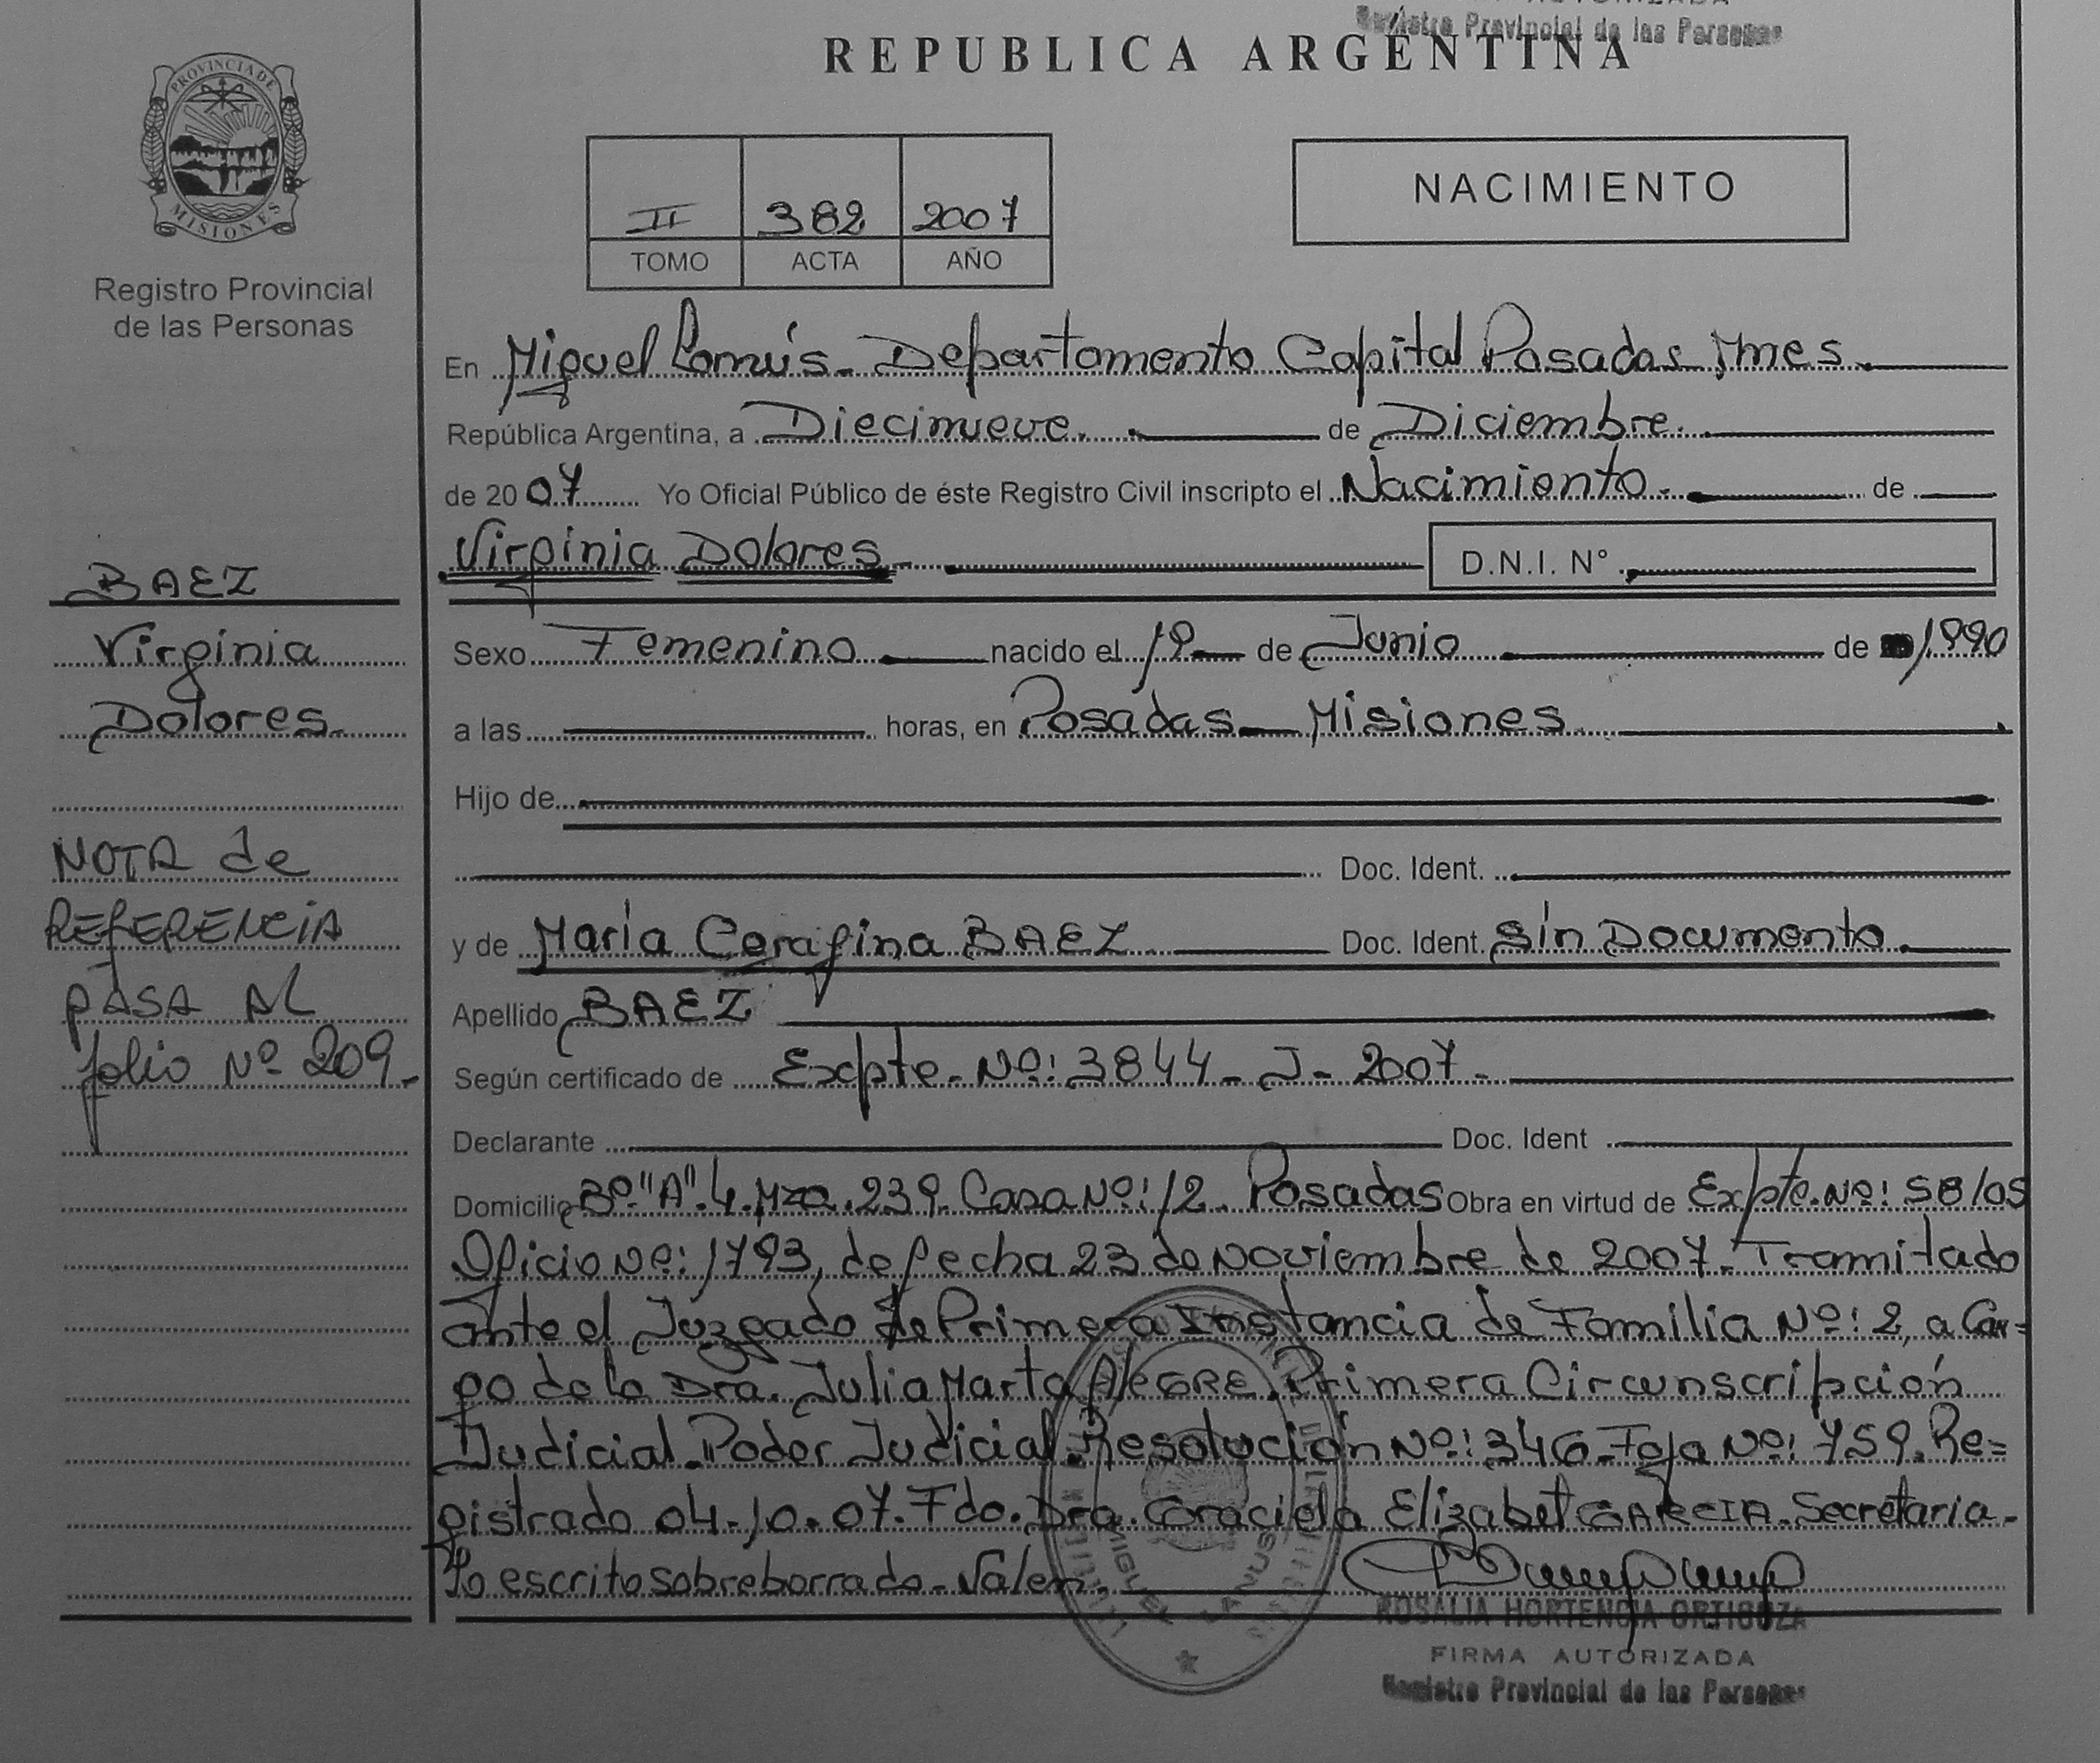 Registro Provincial de las Personas
REPUBLICA ARGENTINA
PROVINCIA DE
MISIONES
Registro Provincial
de las Personas
II 382 2007
TOMO ACTA AÑO
NACIMIENTO
En Miguel Lanús - Departamento Capital Posadas Mnes.
República Argentina, a Diecinueve. de Diciembre.
de 2007 Yo Oficial Público de éste Registro Civil inscripto el Nacimiento - de
Virginia Dolores - D.N.I. N°
Sexo Femenino nacido el 19 de Junio de 1990
a las horas, en Posadas - Misiones
Hijo de
Doc. Ident.
y de María Cerafina BAEZ Doc. Ident. Sin Documento.
Apellido BAEZ
Según certificado de Expte - Nº: 3844 - J - 2007 -
Declarante Doc. Ident
Domicilio Bº "A" 4 Mza. 239 Casa Nº: 12. Posadas Obra en virtud de Expte. Nº: 58/05
Oficio Nº: 1793, de fecha 23 de Noviembre de 2007 - Tramitado
ante el Juzgado de Primera Instancia de Familia Nº: 2, a Car=
go de la Dra. Julia Marta AlEGRE. Primera Circunscripción
Judicial - Poder Judicial. Resolución Nº: 346 - Foja Nº: 759. Re=
gistrado 04.10.07. Fdo. Dra. Graciela Elizabet GARCIA - Secretaria -
Lo escrito sobre borrado - Valen.
BAEZ
Virginia
Dolores -
NOTA de
REFERENCIA
PASA AL
folio Nº 209 -
MIGUEL LANUS
ROSALIA HORTENCIA ORTIGOZA
FIRMA AUTORIZADA
Registro Provincial de las Personas